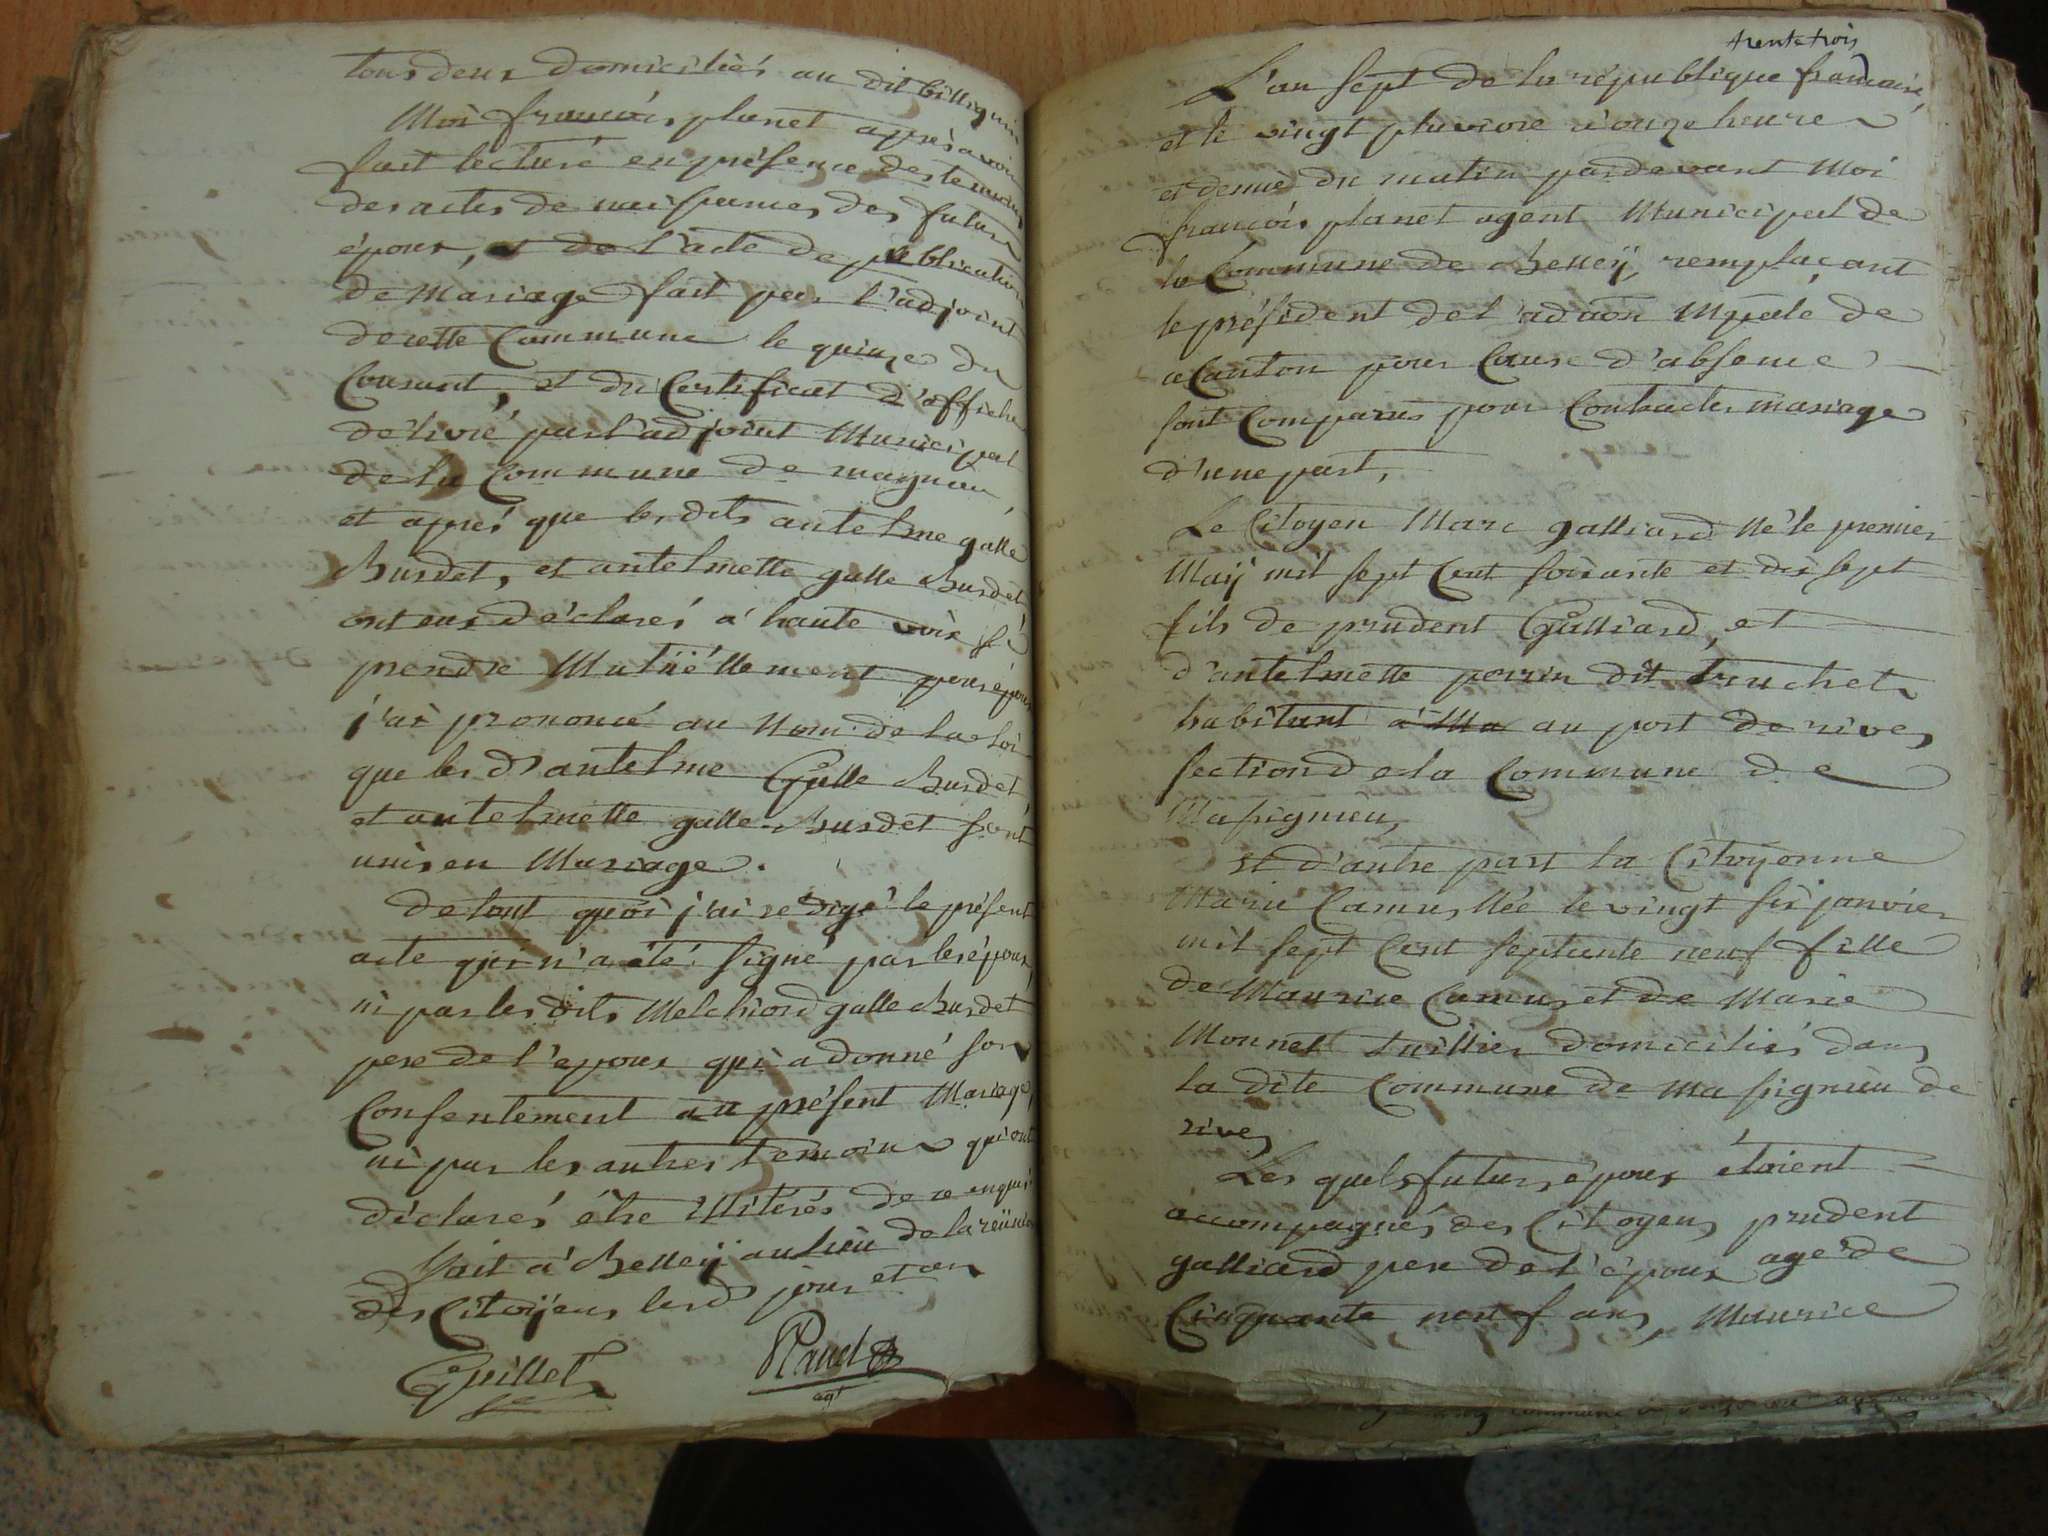 tous deux domiciliés au dit billignin
Moi francois planet après avoir
fait lecture en présence des temoins
des actes de naissances des futurs
époux, et de l'acte de publication
de Mariage fait par l'adjoint
de cette Commune le quinze du
Courant, et du Certificat d'affiche
délivré par l'adjoint Municipal
de la Commune de magnieu
et après que lesdits antelme galle
Burdet, et antelmette galle Burdet,
ont eus déclarés à haute voix se
prendre Mutüéllement pour époux
j'ai prononcé au Nom de la loi
que les d. antelme Galle Burdet,
et antelmette galle-Burdet sont
unis en Mariage.
de tout quoi j'ai rédigé le présent
acte qui n'a été signé par les époux,
ni par les dits Melchiord galle Burdet
pere de l'epoux qui a donné son
Consentement au présent Mariage,
ni par les autres temoins qui ont
déclarés étre illiterés de ce enquis
Fait à Belleÿ au lieu de la réünion
des Citoÿens lesd. jour et an
Guillet Planet
agt
trente trois
L'an sept de la république francaise,
et le vingt pluviose à onze heures
et demie du matin pardevant Moi
francois planet agent Municipal de
la Commune de Belleÿ, remplaçant
le président de l'adaon Mpale de
ce Canton pour Cause d'absence
sont Comparus pour Contracter mariage
d'une part,
Le Citoyen Marc galliard Né le premier
Maÿ mil sept Cent soixante et dix sept
fils de prudent Galliard, et
d'antelmette perrin dit truchet
habitant à Ma au port de rives
section de la Commune de
Massignieu,
Et d'autre part la Citoÿenne
Marie Camus Née le vingt six janvier
mil sept Cent septante neuf fille
de Maurice Camus et de Marie
Monnet tuillier domiciliés dans
la dite Commune de Massignieu de
rives
Les quels futurs époux étoient
accompagnés des Citoyens prudent
galliard pere de l'époux agé de
Cinquante neuf ans, Maurice